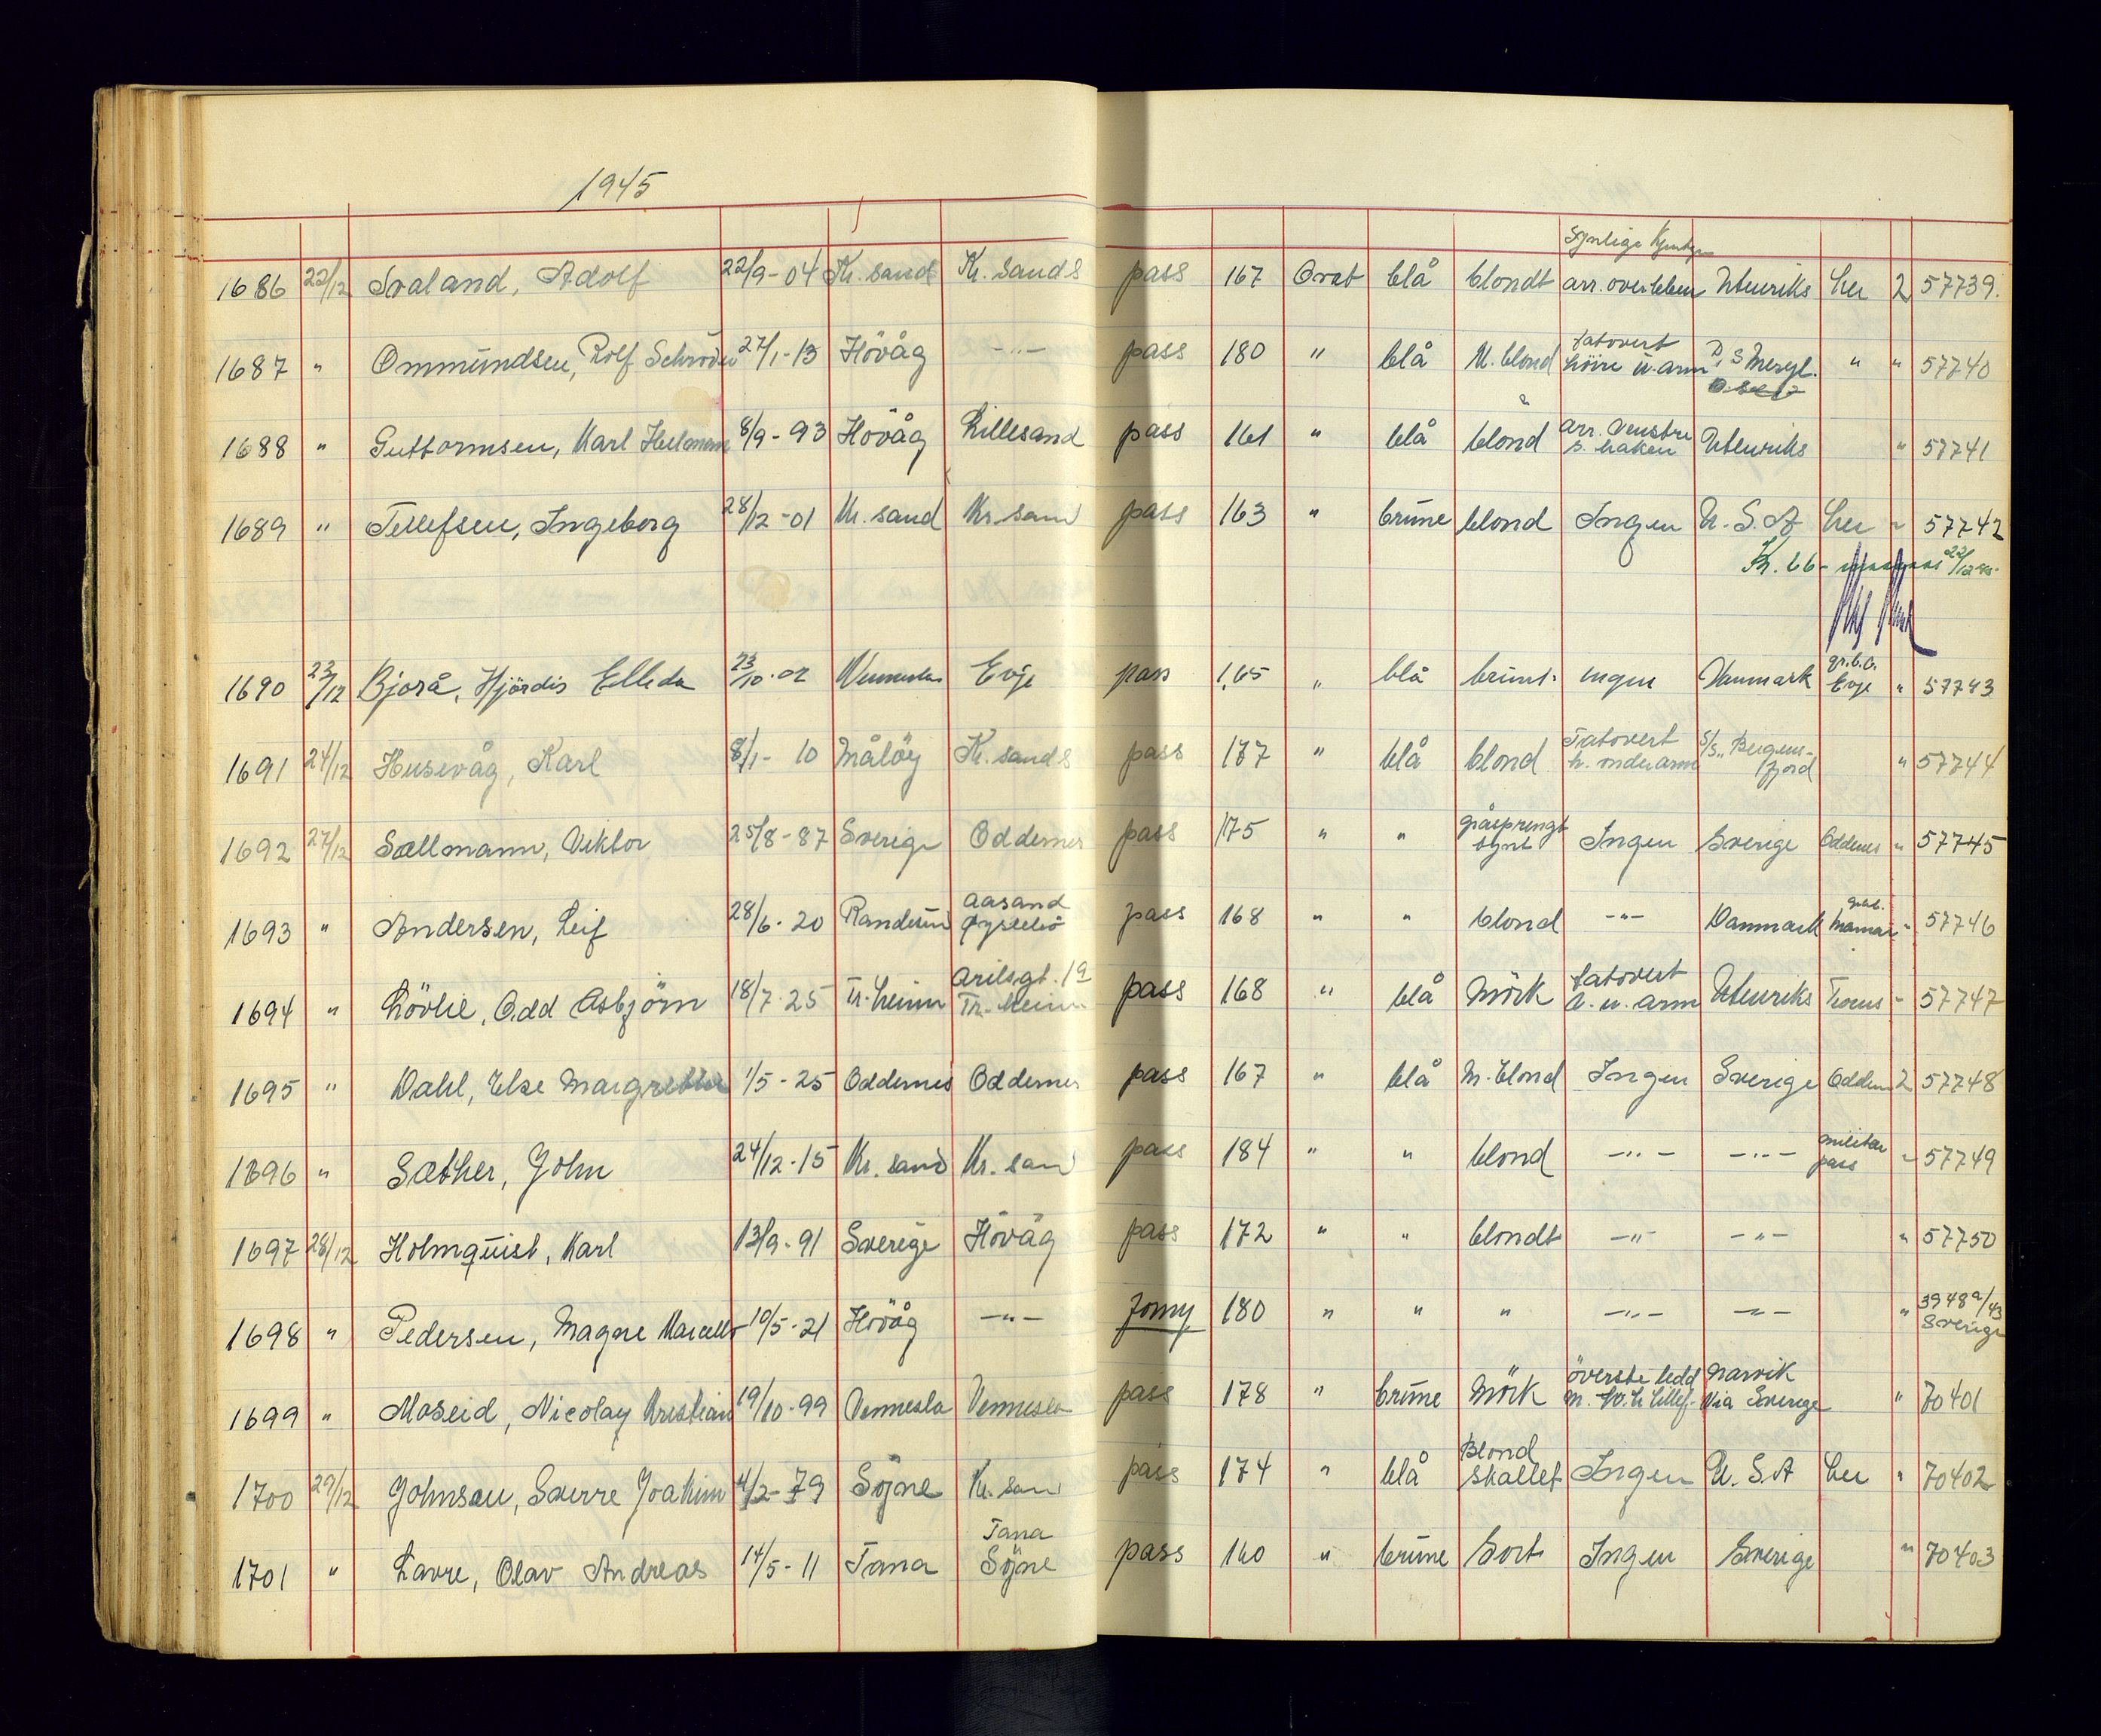 1945
Synlige
1686 22/12 Svaland, Adolf 22/9-04 Kr.sand S Kr. sand S pass 167 Oval blå blondt arr. overleben Utenriks her 2 57739.
1687 " Ommundsen, Rolf Schröder 27/1-13 Hövåg -"- pass 180 " blå M. blond tatovert höire u.arm D/S " " 57740
1688 " Guttormsen, Karl 8/9-93 Hövåg Lillesand pass 161 " blå blond arr. venstre s. haken Utenriks " 57741
1689 " Tellefsen, Ingeborg 28/12-01 Kr. sand Kr. sand pass 163 " brune blond Ingen U.S.A her " 57742
Kr. 66- 22/12 45.
1690 23/12 Bjorå, Hjördis Elleda 23/10-02 Vennesla Evje pass 1,65 " blå brunt. ingen Danmark Evje " 57743
1691 24/12 Husevåg, Karl 8/1-10 Målöy Kr. sand S pass 177 " blå blond Tatovert h. underarm S/S. "Bergensfjord " 57744
1692 27/12 Sællmann, Viktor 25/8-87 Sverige Oddernes pass 175 " " gråsprengt tynt Ingen Sverige Oddernes " 57745
1693 " Andersen, Leif 28/6-20 Randesund Aasand pass 168 " " blond -"- Danmark " 57746
1694 " Lövlie, Odd Asbjörn 18/7-25 Tr.heim Arilsgt. 19 Tr.heim pass 168 " blå Mörk tatovert h. u. arm Utenriks " 57747
1695 " Dahl, Else Margrethe 1/5-25 Oddernes Oddernes pass 167 " blå M. blond Ingen Sverige Oddernes 2 57748
1696 " Sæther, John 24/12-15 Kr. sand Kr. sand pass 184 " " blond -"- -"- militær pass " 57749
1697 28/12 Holmquist, Karl 13/9-91 Sverige Hövåg pass 172 " " blondt -"- -"- " 57750
1698 " Pedersen, Magne Marcello 10/5-21 Hövåg -"- Forny 180 " " " -"- -"- " 3948a/43 Sverige
1699 " Moseid, Nicolay Kristian 19/10-99 Vennesla Vennesla pass 178 " brune Mörk överste ledd m. Narvik via Sverige " 70401
1700 29/12 Johnsen, Sverre Joakim 4/2-79 Söjne Kr. sand pass 174 " blå Blond skallet Ingen U.S.A her " 70402
1701 " Lavre, Olav Andreas 14/5-11 Tana Tana Söjne pass 160 " brune Sort Ingen Sverige " 70403